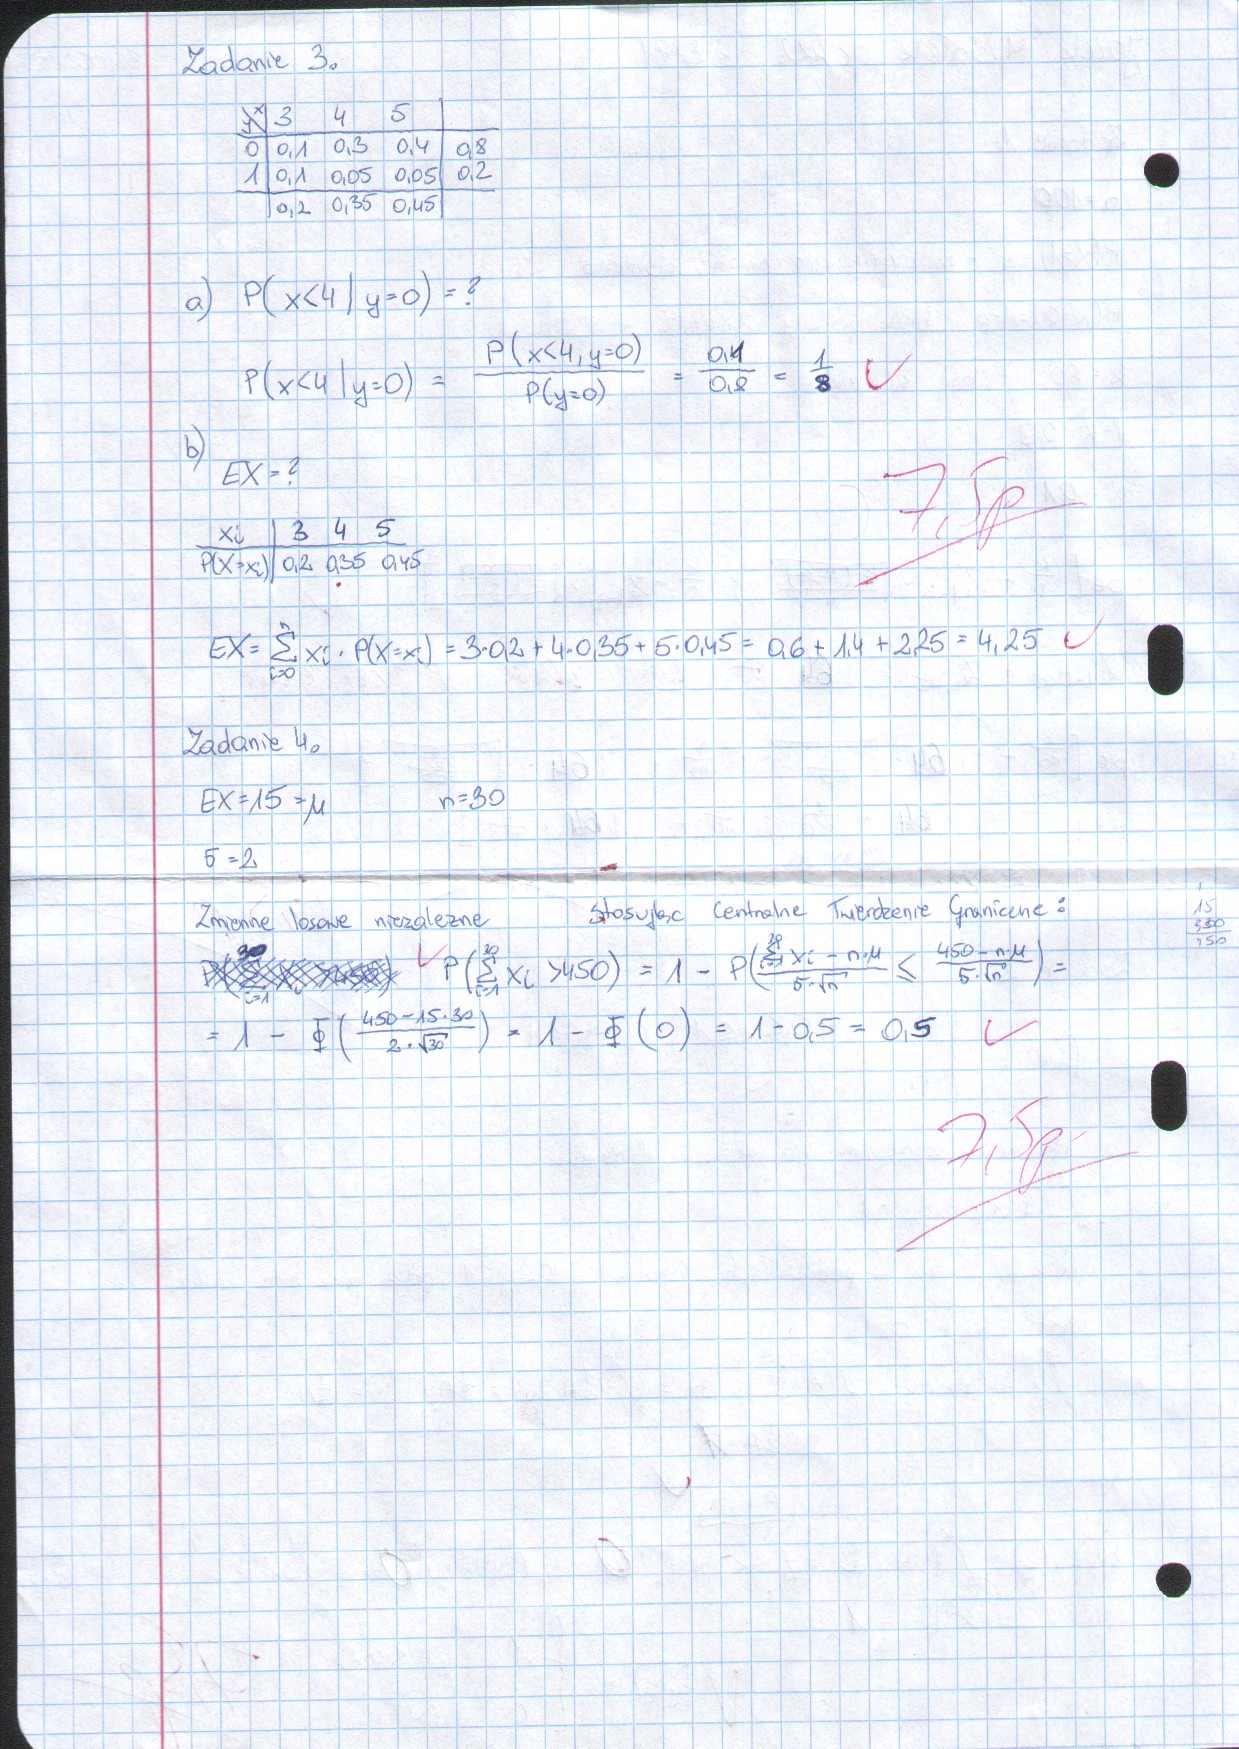 Zadanie 3.
y\x 3 4 5
0 0,1 0,3 0,4 0,8
1 0,1 0,05 0,05 0,2
0,2 0,35 0,45
a) P(x<4 | y=0) = ?
P(x<4 | y=0) = P(x<4, y=0) / P(y=0) = 0,1 / 0,8 = 1/8 ✓
b)
EX = ?
7,5p
xi 3 4 5
P(X=xi) 0,2 0,35 0,45
EX = n∑i=0 xi · P(X=xi) = 3·0,2 + 4·0,35 + 5·0,45 = 0,6 + 1,4 + 2,25 = 4,25 ✓
Zadanie 4.
EX = 15 = μ n=30
σ = 2
Zmienne losowe niezależne Stosując Centralne Twierdzenie Graniczne:
✓ P(30∑i=1 xi > 450) = 1 - P((30∑i=1 xi - n·μ) / (σ·√n) ≤ (450 - n·μ) / (σ·√n)) =
= 1 - Φ((450 - 15·30) / (2·√30)) = 1 - Φ(0) = 1 - 0,5 = 0,5 ✓
7,5p